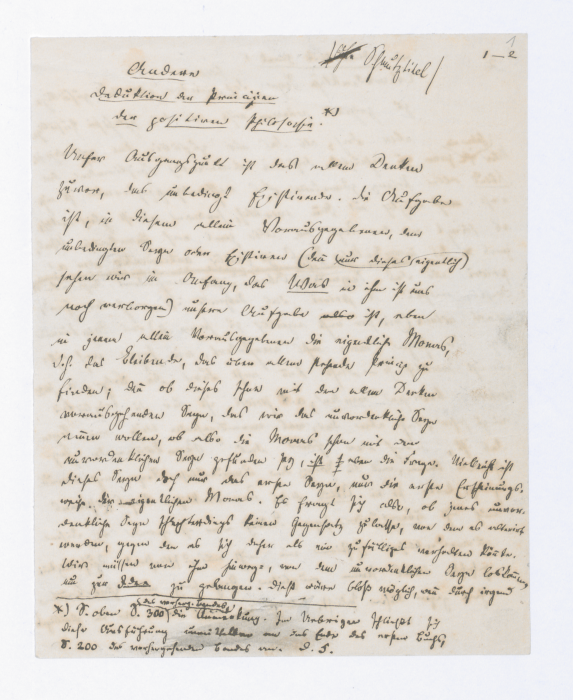 Schmutztitel/
1—2
Andere
Deduktion der Principien
der positiven Philosophie.*)
Unser Ausgangspunkt ist das allem Denken
zuvor, das unbedingt Existirende. Die Aufgabe
ist, in diesem allein Vorausgegebenen, dem
unbedingten Seyn oder Existiren (denn nur dieses eigentlich)
sehen wir im Anfang, das Was in ihm ist uns
noch verborgen) unsere Aufgabe also ist, eben
in jenem allein Vorausgegebenen die eigentliche Monas,
d.h. das Bleibende, das über allem stehende Princip zu
finden; denn ob dieses schon mit dem allem Denken
vorausgehenden Seyn, das wir das unvordenkliche Seyn
nennen wollen, ob also die Monas schon mit dem
unvordenklichen Seyn gefunden sey, ist eben die Frage. Vielleicht ist
dieses Seyn doch nur das erste Seyn, nur die erste Erscheinungs-
weise der eigentlichen Monas. Es fragt sich also, ob jenes unvor-
denkliche Seyn schlechterdings keinen Gegensatz zulasse, von dem es alterirt
werden, gegen den es sich daher als ein zufälliges verhalten könnte.
Wir müssen von ihm hinweg, von dem unvordenklichen Seyn loskommen,
um zur Idee zu gelangen. Dieß wäre bloß möglich, wenn durch irgend
(des vorherg. Bandes)
*) S. oben S. 300 die Anmerkung. Im Uebrigen schließt sich
diese Ausführung an das Ende des ersten Buchs,
S. 200 des vorhergehenden Bandes an. D. H.